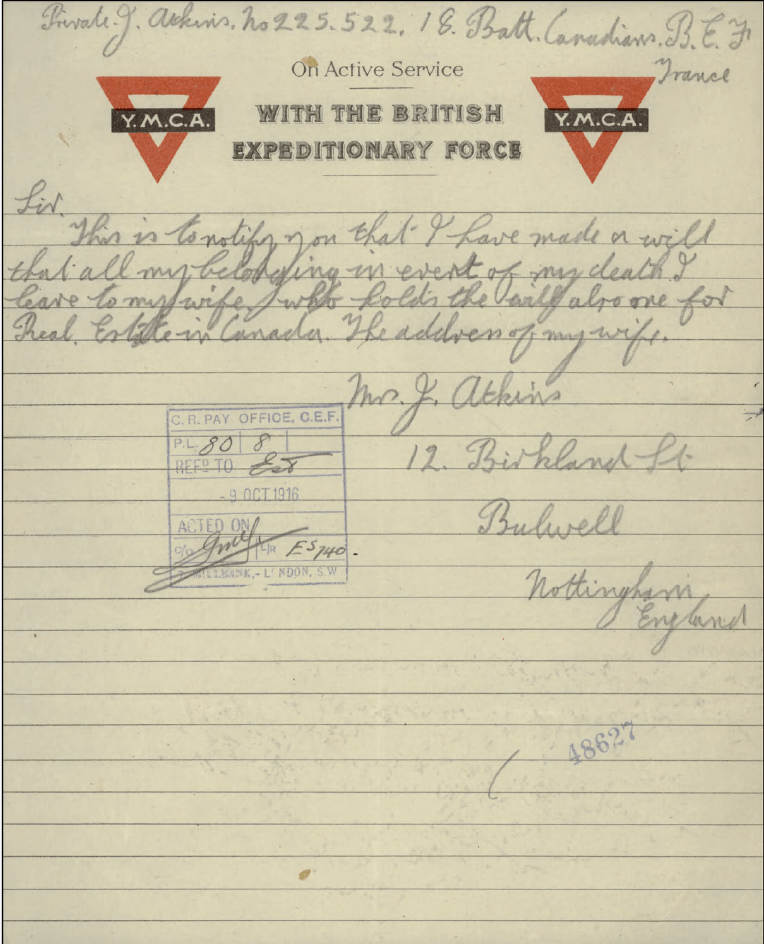 Private. J. Atkins. No 225.522. 18. Batt. Canadians. B. E. F
France
On Active Service
Y.M.C.A.
WITH THE BRITISH
EXPEDITIONARY FORCE
Y.M.C.A.
Sir.
This is to notify you that I have made a will
that all my belonging in event of my death I
leave to my wife, who holds the will also one for
Real. Estate in Canada. The address of my wife.
Mrs. J. Atkins
12. Birkland St
Bulwell
Nottingham
England
C. R. PAY OFFICE, C.E.F.
P.L. 80 8
REFD TO Est
- 9 OCT. 1916
ACTED ON
C/O L/R ES 740.
MILLBANK, - LONDON, S.W
48627